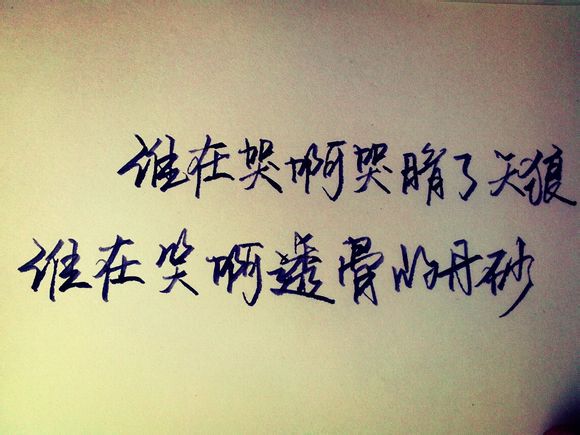 谁在哭啊哭瞎了天狼
谁在笑啊透骨的丹砂